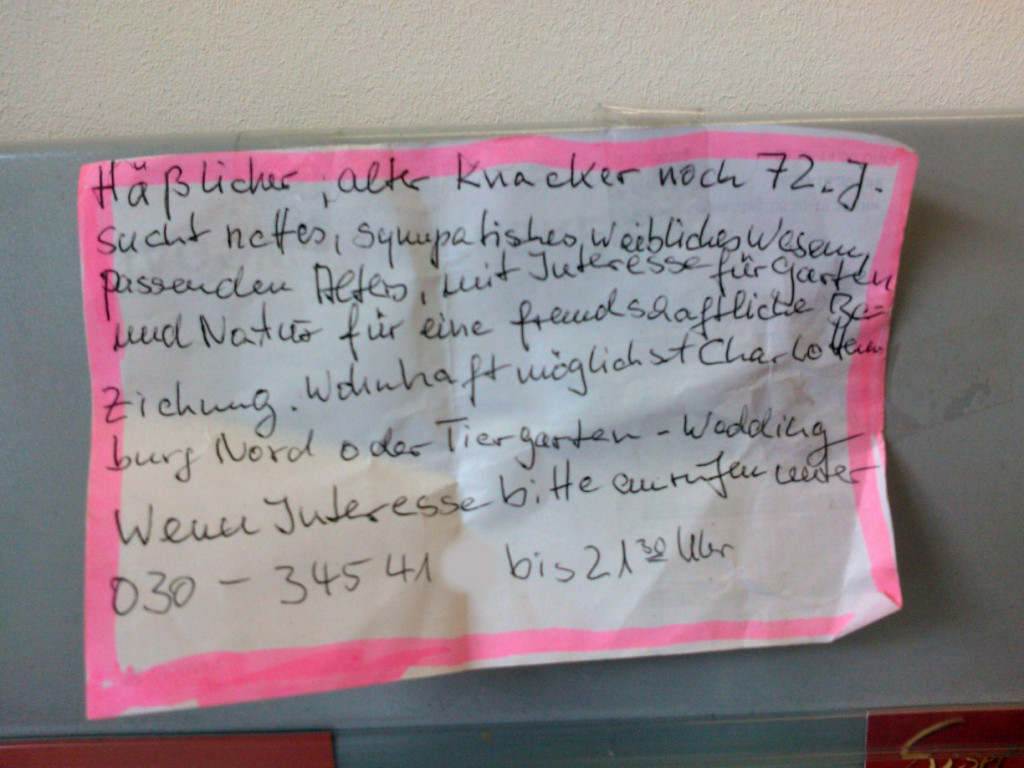 Häßlicher, alter Knacker noch 72. J.
sucht nettes, sympatisches, weibliches Wesen,
passenden Alters, mit Interesse für Garten
und Natur für eine freundschaftliche Be=
ziehung. Wohnhaft möglichst Charlotten
burg Nord oder Tiergarten - Wedding
Wenn Interesse bitte anrufen unter
030 - 345 41 bis 21 30 Uhr